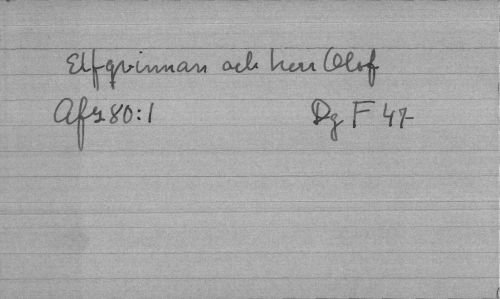 Elfqvinnan och herr Olof
Afz 80:1 Dg F 47